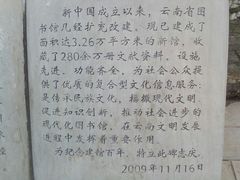 新中国成立以来，云南省图
书馆几经扩充改建，现已建成了
面积达3.26万平方米的新馆，收
藏了280余万册文献资料，设施
先进、功能齐全，为社会公众提
供了优质的复合型文化信息服务；
是传承民族文化，播撒现代文明，
促进知识创新，推动社会进步的
现代化图书馆，在云南文明发展
进程中发挥着重要作用。
为纪念建馆百年，特立此碑志庆。
2009年11月16日